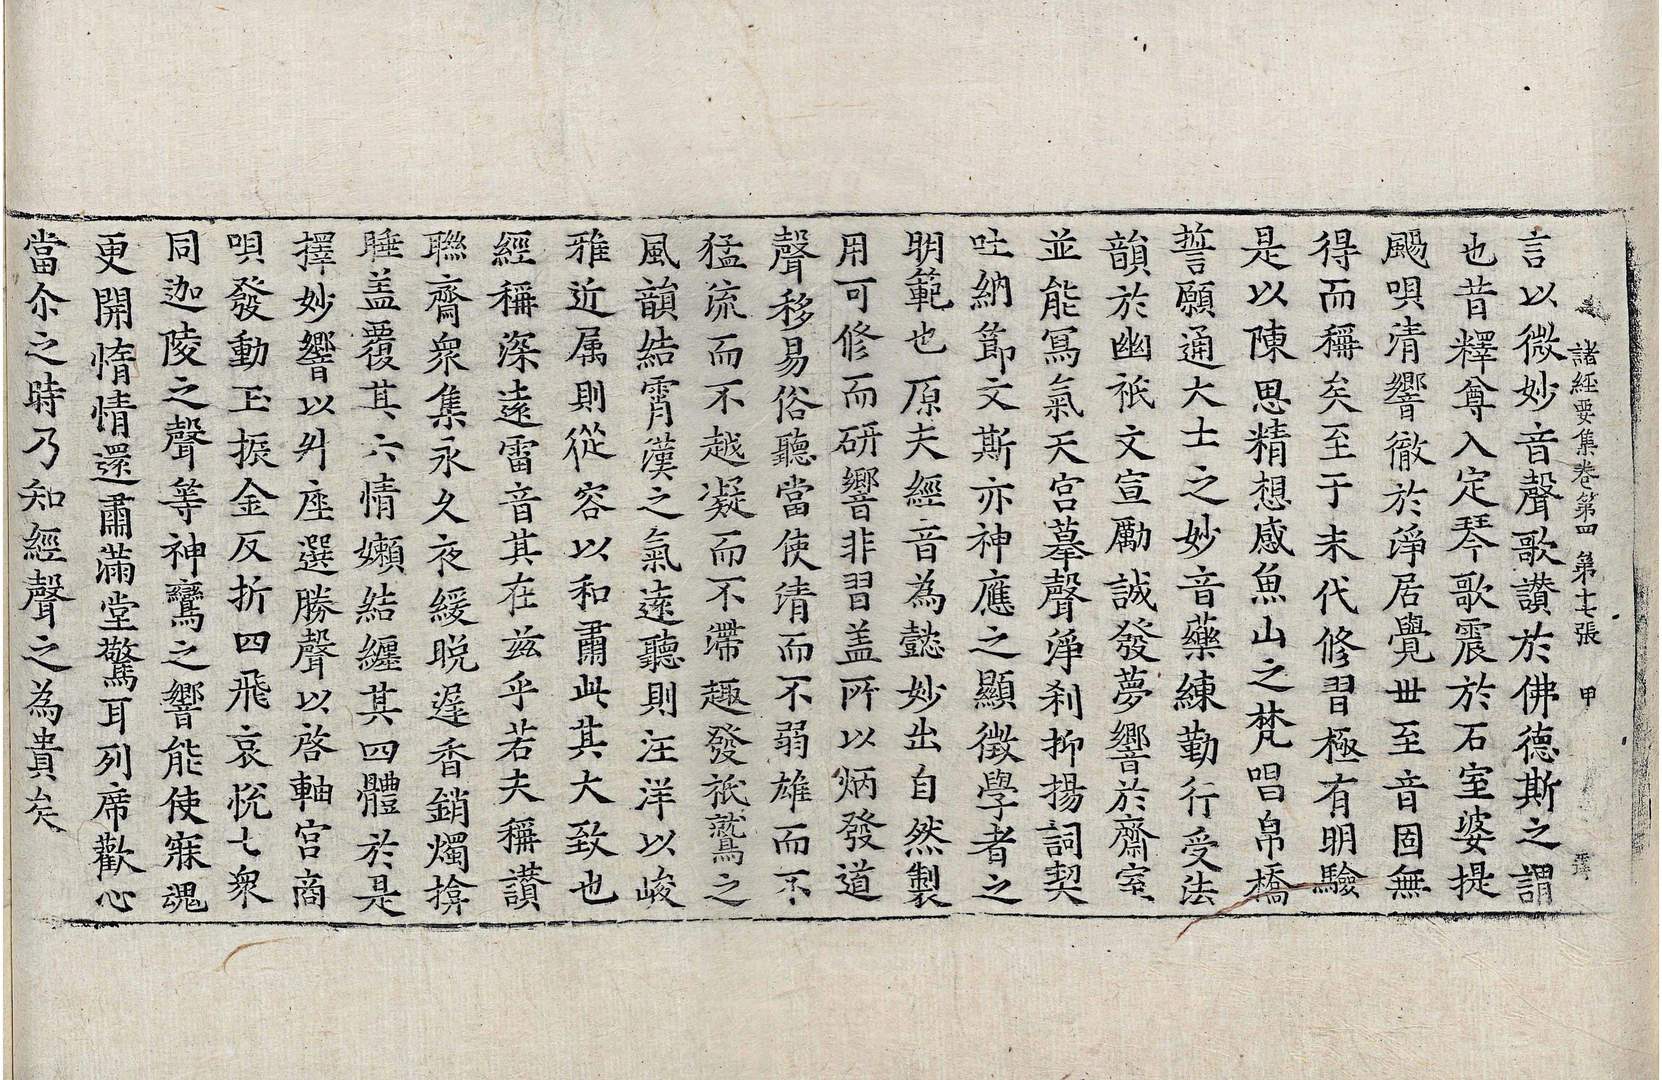 諸經要集卷第四 第十七張 甲
言以微妙音聲歌讃於佛德斯之謂
也昔釋尊入定琴歌震於石室婆提
颺唄清響徹於淨居覺丗至音固無
得而稱矣至于末代修習極有明驗
是以陳思精想感魚山之梵唱帛橋
誓願通大士之妙音藥練勤行受法
韻於幽祇文宣勵誠發夢響於齋室
並能冩氣天宮摹聲淨刹抑揚詞契
吐納節文斯亦神應之顯徵學者之
明範也原夫經音為懿妙出自然製
用可修而研響非習盖所以炳發道
聲移易俗聽當使清而不弱雄而不
猛流而不越凝而不滯趣發祇鷲之
風韻結霄漢之氣遠聽則汪洋以峻
雅近属則從容以和肅此其大致也
經稱深遠雷音其在兹乎若夫稱讃
聯齋衆集永久夜緩晚遲香銷燭揜
睡盖覆其六情嬾結纏其四體於是
擇妙響以升座選勝聲以啓軸宮商
唄發動玉振金反折四飛哀悅七衆
同迦陵之聲等神鸞之響能使寐魂
更開惰情還肅滿堂驚耳列席歡心
當尒之時乃知經聲之為貴矣